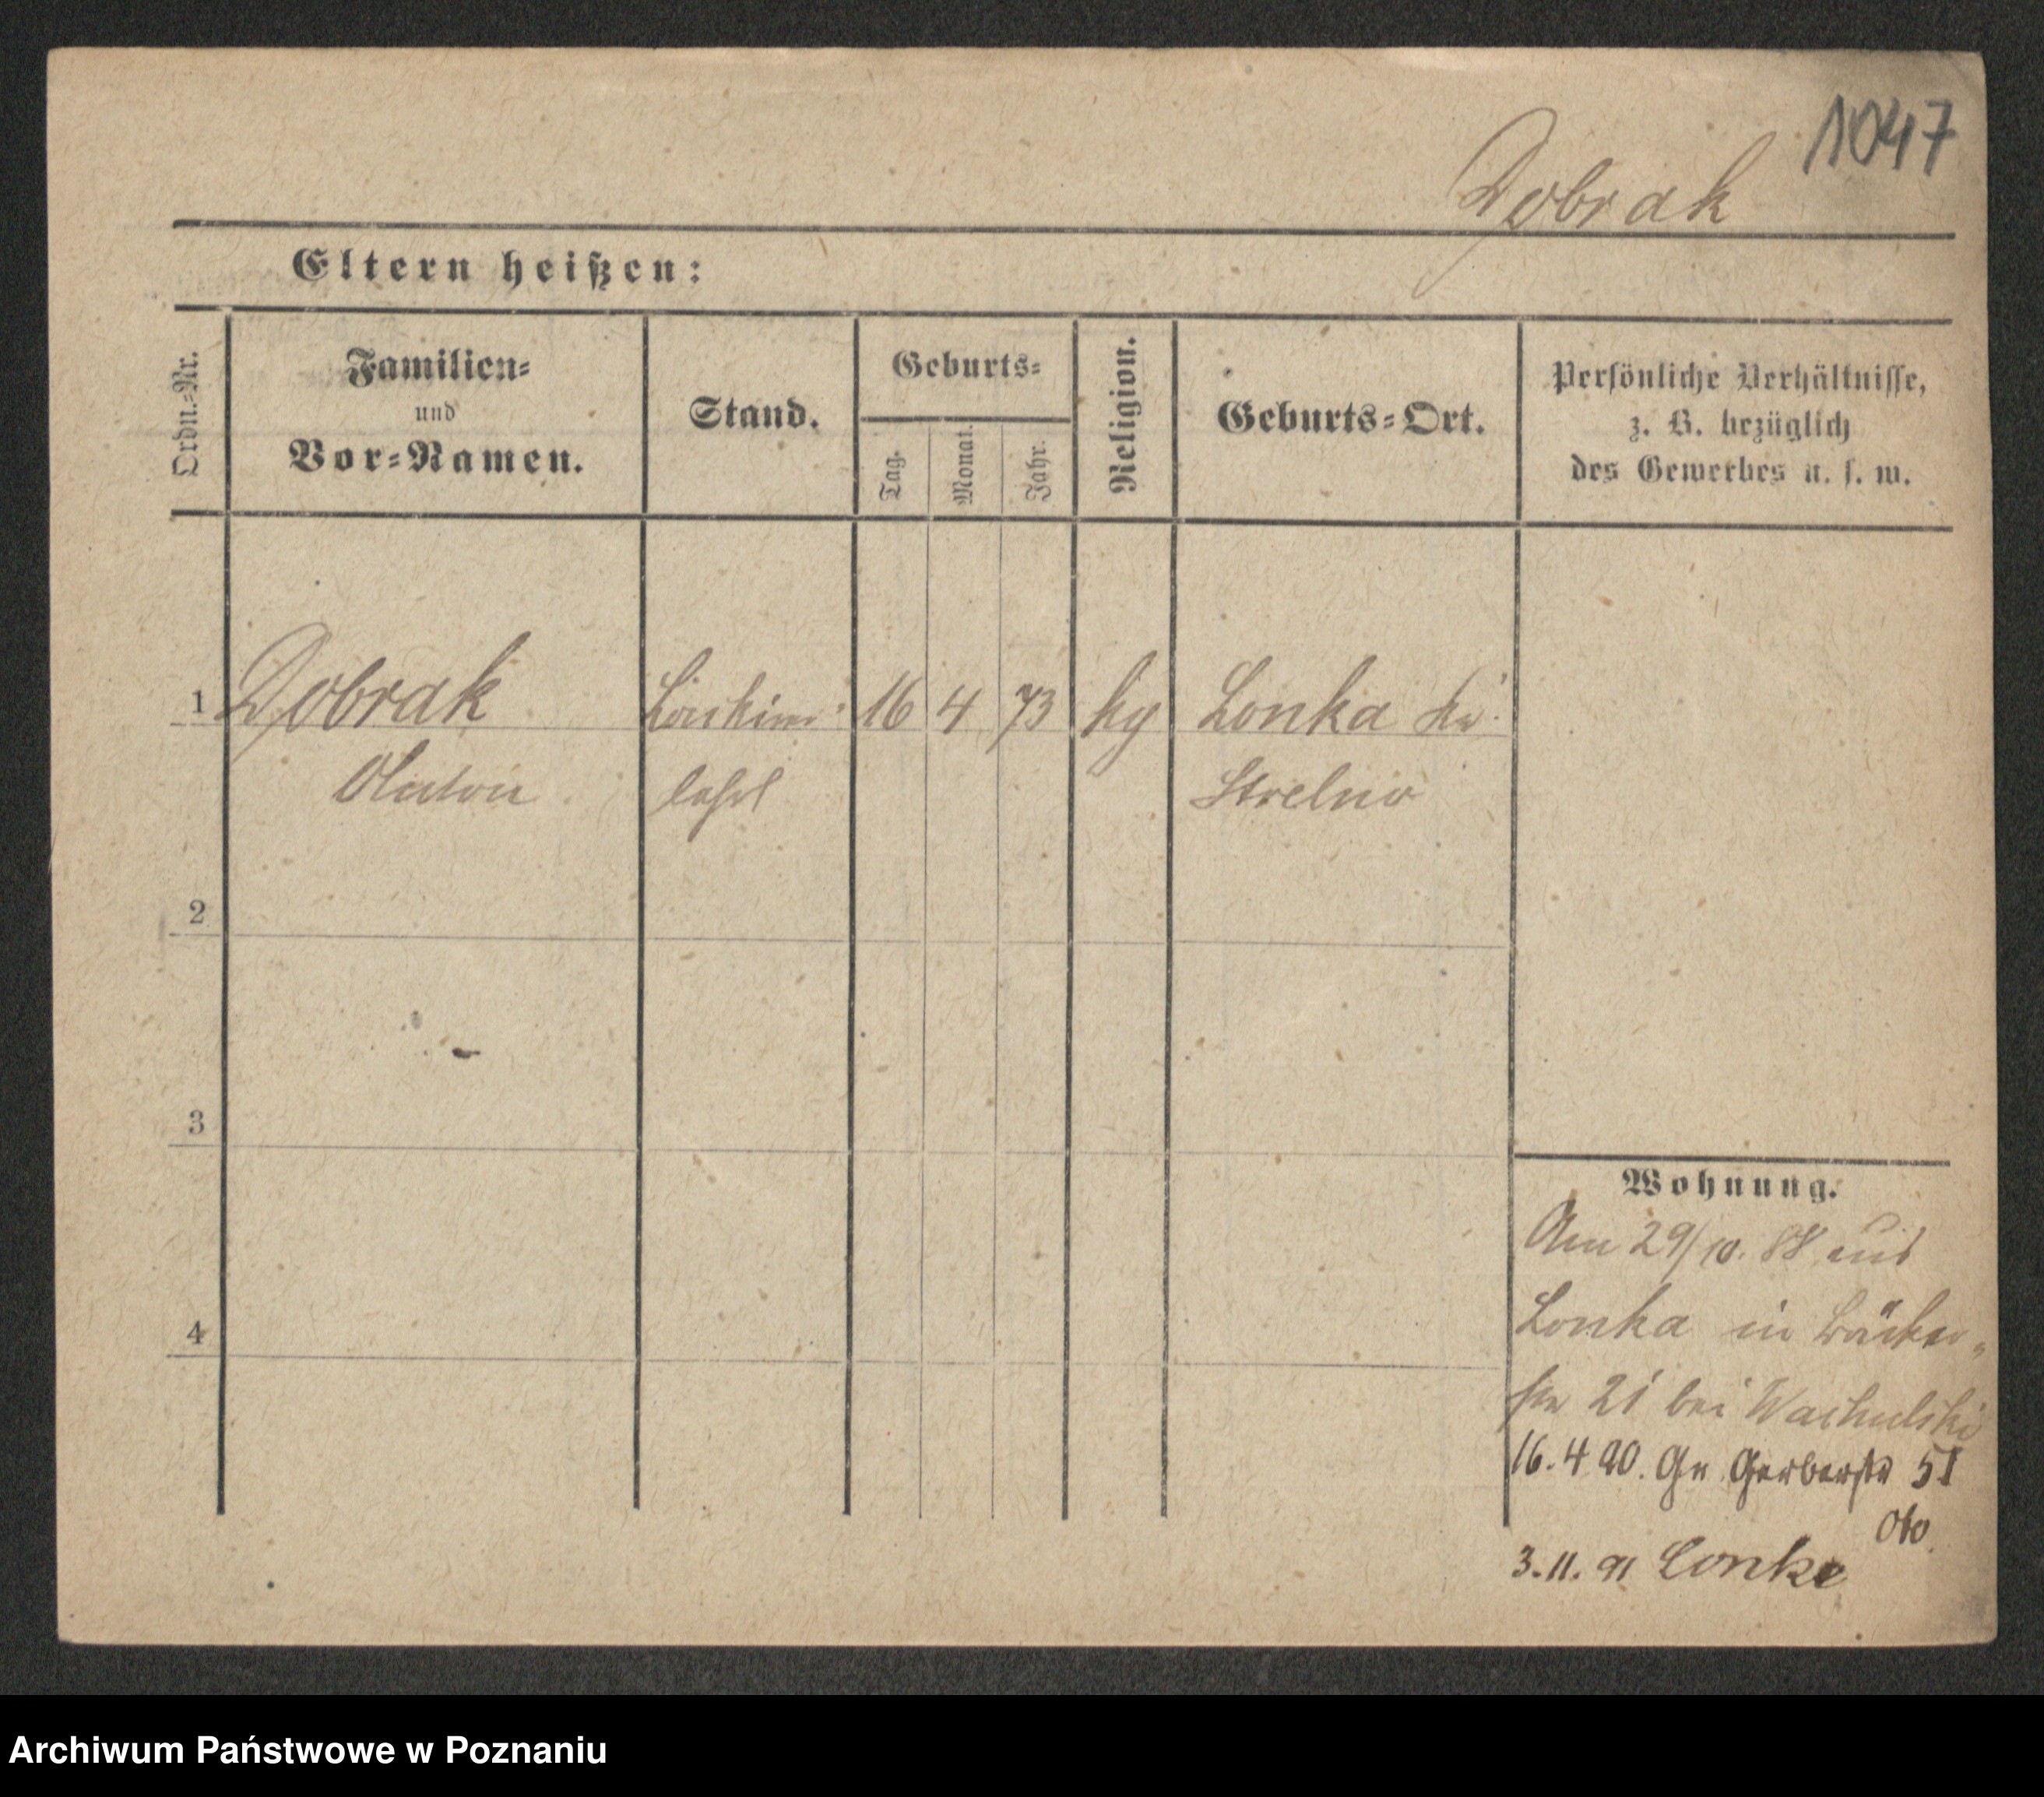 1047
Dobrak
Eltern heißen:
Ordn.-Nr.
Familien-
und
Vor-Namen.
Stand.
Geburts-
Tag.
Monat.
Jahr.
Religion.
Geburts-Ort.
Persönliche Verhältnisse,
z. B. bezüglich
des Gewerbes u. s. w.
1 Dobrak 16 4 73 Lonka
Anton Strelno
2
3
4
Wohnung.
Am 29/10. 88 aus
Lonka in Bäcker-
str 21 bei Wachulski
16.4 90. Gr Gerberstr 51
3.11. 91 Lonke
Archiwum Państwowe w Poznaniu